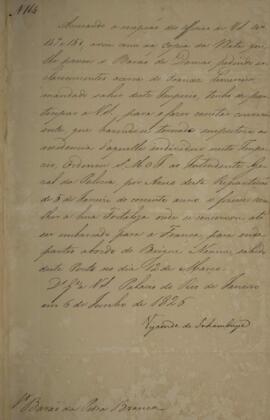 Accusando a recepção dos officios de V.S. nos
147 e 151, assim como a copia da Nota
passou o Barão de Damas pedindo es-
clarecimentos acerca de
mandado sahir deste Imperio, tenho de
a V.S. para o fazer constar
que havendo-se tornado suspeitosa a
residencia d'aquelle individuo neste Impe-
rio, Ordenou S.M.O.I. ao Intendente Ge-
ral da Policia, por Aviso desta Repartição
de 3 de Janeiro do corrente anno o fizesse reco-
lher a huma Fortaleza onde se conservou até
ser embarcado para a França, para onde
partio abordo do Bergue
deste Porto no dia 12 de Março.
Ds. Ge. a V.S. Palacio do Rio de Janeiro
em 6 de Junho de 1826
Visconde de Inhambupe
Sr. Barão da Pedra Branca